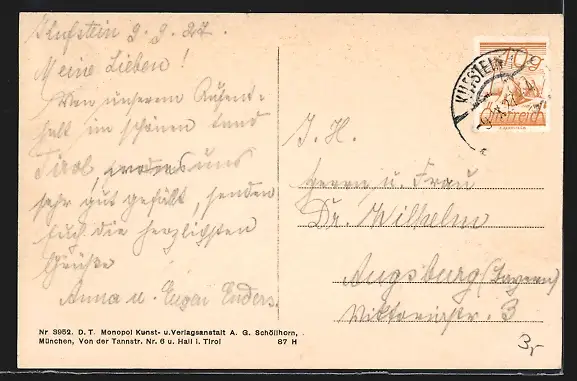 Kufstein 9.9.27.
Meine Lieben!
Von unserem Aufent-
halt im schönen Land
Tirol, uns
sehr gut gefällt, senden
Euch die herzlichsten
Grüße
Anna u. Eugen Enders.
Nr 3952. D. T. Monopol Kunst- u. Verlagsanstalt A. G. Schöllhorn,
München, Von der Tannstr. Nr. 6 u. Hall i. Tirol 87 H
10g
Österreich
KUFSTEIN
I. H.
Herrn u. Frau
Dr. Wilhelm
Augsburg (Bayern)
Viktoriastr. 3
3,-